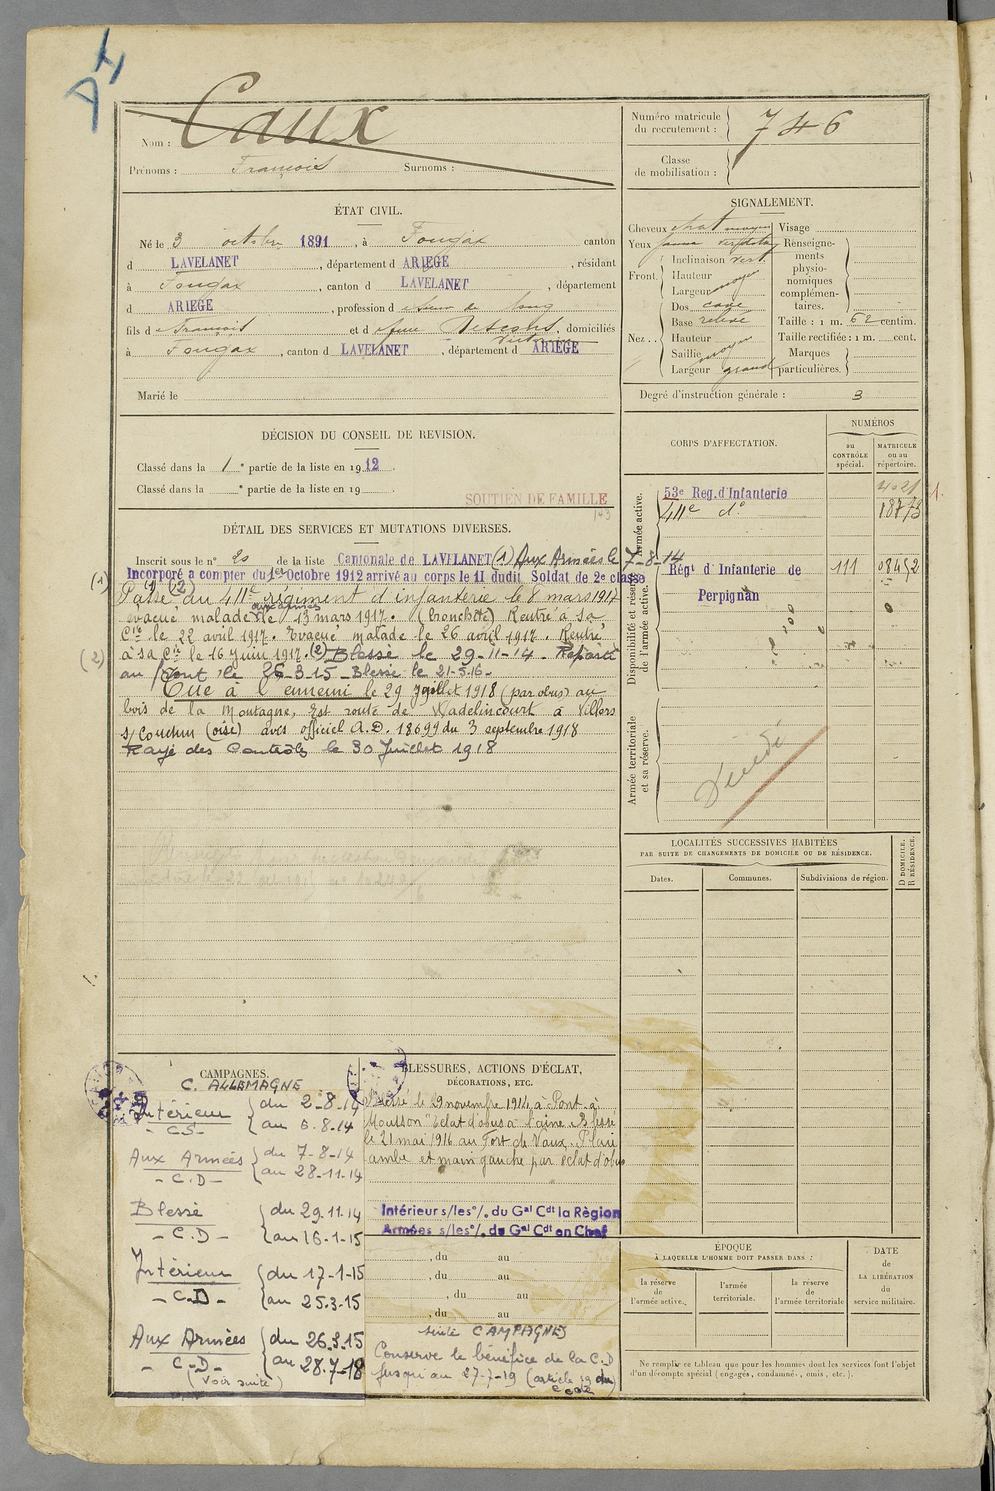 Nom : Caux
Prénoms : François Surnoms :
Numéro matricule du recrutement : 746
Classe de mobilisation :
ÉTAT CIVIL.
Né le 3 octobre 1891, à Fougax canton
d LAVELANET, département d ARIEGE, résidant
à Fougax, canton d LAVELANET, département
d ARIEGE, profession d scieur de long
fils d e François et d e feue Descons, domiciliés
à Fougax, canton d LAVELANET, département d ARIEGE
Marié le
SIGNALEMENT.
Cheveux chat moyen Visage
Yeux
Renseignements physionomiques complémentaires.
Front. Inclinaison vert.
Hauteur moy
Largeur
Nez. . Dos cave
Base relevé
Hauteur moyen
Saillie
Largeur grand
Taille : 1 m. 62 centim.
Taille rectifiée : 1 m. cent.
Marques particulières.
Degré d'instruction générale : 3
DÉCISION DU CONSEIL DE REVISION.
Classé dans la 1e partie de la liste en 1912.
Classé dans la e partie de la liste en 19 .
SOUTIEN DE FAMILLE
DÉTAIL DES SERVICES ET MUTATIONS DIVERSES.
Inscrit sous le n° 20 de la liste Cantonale de LAVELANET (1) Aux Armées le 7-8-14
(1) Incorporé a compter du 1er Octobre 1912 arrivé au corps le 11 dudit Soldat de 2e classe
Passé au 411e régiment d'infanterie le 8 mars 1917
évacué malade aux armées le 13 mars 1917. (bronchite) Rentré à sa
Cie le 22 avril 1917. Evacué malade le 26 avril 1917. Rentré
(2) à sa Cie le 16 juin 1917. (2) Blessé le 29-11-14. Reparti
au front le 26-3-15 Blessé le 21-5-16
Tué à l'ennemi le 29 juillet 1918 (par obus) au
bois de la Montagne, Est route de Vadelincourt à Villers
s/ Coudun (oise) avis officiel A.D. 18699 du 3 septembre 1918
Rayé des Contrôles le 30 Juillet 1918
CORPS D'AFFECTATION.
NUMÉROS
au CONTRÔLE spécial.
MATRICULE ou au répertoire.
Armée active.
53e Reg. d'Infanterie
411e do
Disponibilité et réserve de l'armée active.
Régt d'Infanterie de Perpignan 111
Armée territoriale et sa réserve.
Décédé
LOCALITÉS SUCCESSIVES HABITÉES
PAR SUITE DE CHANGEMENTS DE DOMICILE OU DE RÉSIDENCE.
Dates. Communes. Subdivisions de région.
D DOMICILE. R RÉSIDENCE.
CAMPAGNES.
C. ALLEMAGNE
Intérieur du 2-8-14
- CS - au 6-8-14
Aux Armées du 7-8-14
- C.D - au 28-11-14
Blessé du 29.11.14
- C.D - au 16-1-15
Intérieur du 17-1-15
- C.D - au 25.3-15
Aux Armées du 26.3.15
- C-D - au 28.7-18
(Voir suite)
BLESSURES, ACTIONS D'ÉCLAT,
DÉCORATIONS, ETC.
Blessé le 29 novembre 1914 à Pont à
Mousson "éclat d'obus à l'aine. Blessé
le 21 mai 1916 au Fort de Vaux. Plaie
jambe et main gauche par éclat d'obus
Intérieur s/les o/. du Gal Cdt la Région
Armées s/les o/. du Gal Cdt en Chef
, du au
, du au
, du au
, du au
suite CAMPAGNES
Conserve le bénéfice de la C.D
jusqu'au 27-7-19 (article 19 du
code
ÉPOQUE
À LAQUELLE L'HOMME DOIT PASSER DANS :
la réserve de l'armée active.
l'armée territoriale.
la réserve de l'armée territoriale
DATE de LA LIBÉRATION du service militaire.
Ne remplir ce tableau que pour les hommes dont les services font l'objet
d'un décompte spécial (engagés, condamné, omis, etc.).